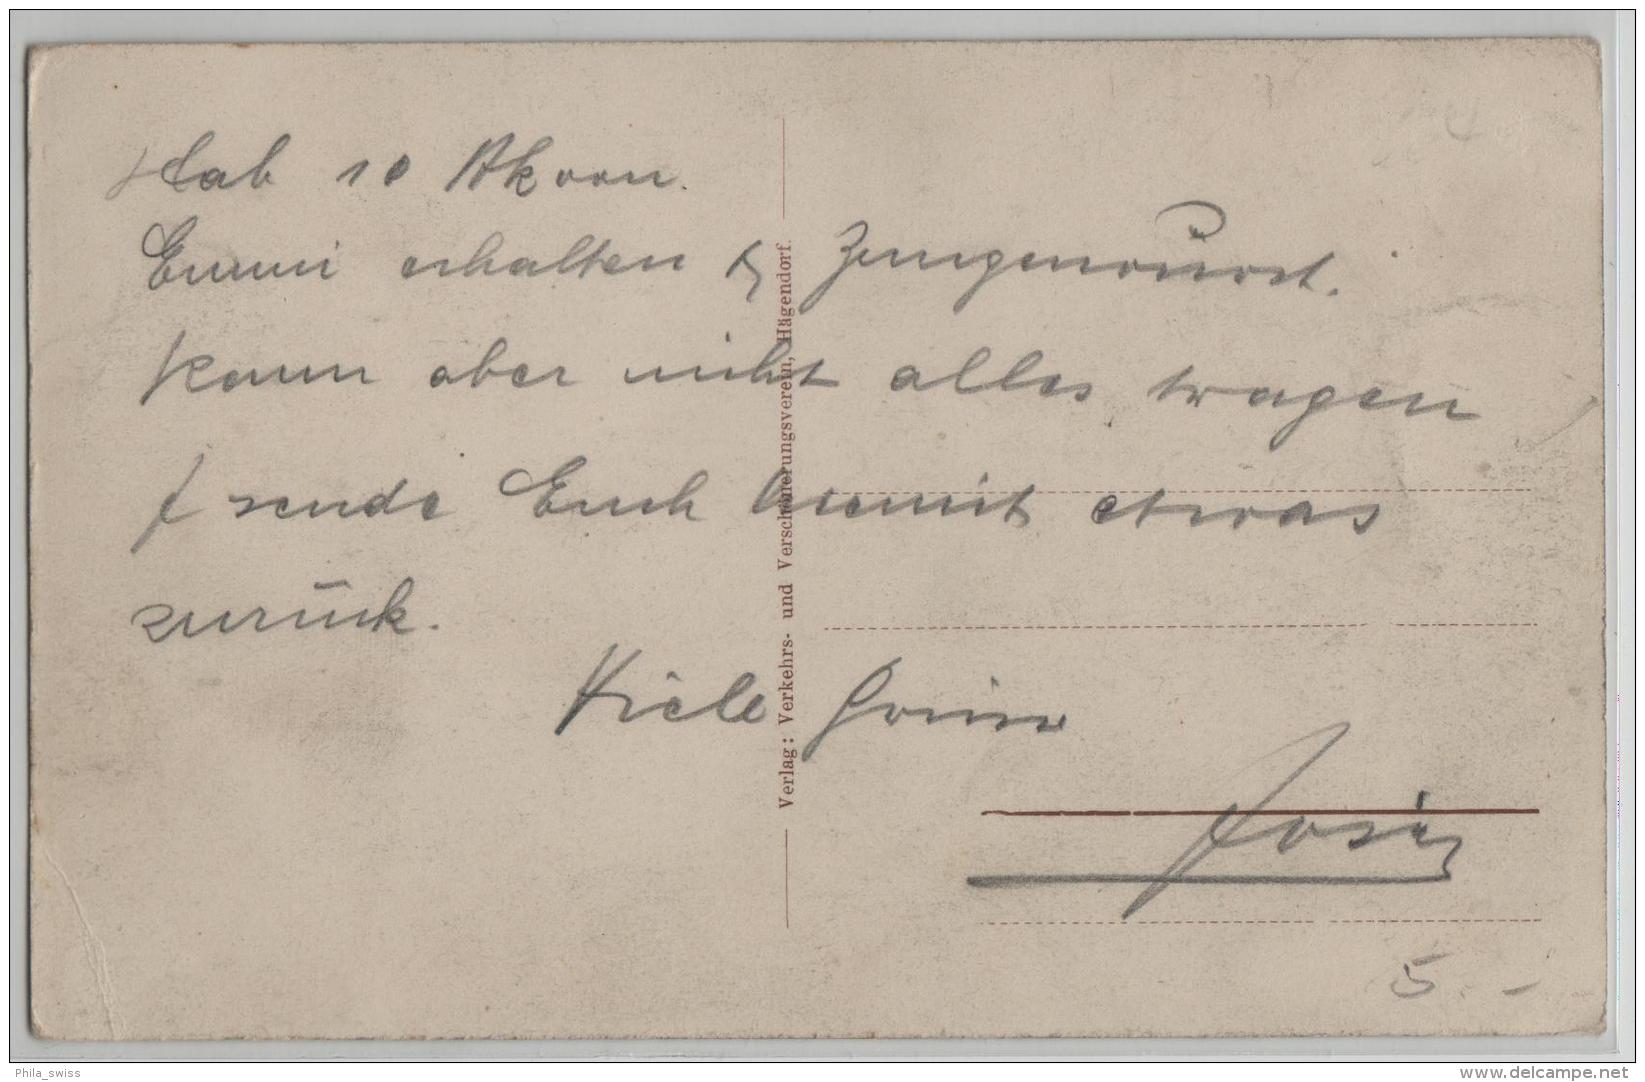 Hab 10 Mk von
Emmi erhalten & Zungenwurst.
Kann aber nicht alles tragen
& sende Euch hiemit etwas
zurück.
Viele Grüsse
Verlag: Verkehrs- und Verschönerungsverein, Hägendorf.
5.-
Phila_swiss
www.delcampe.net